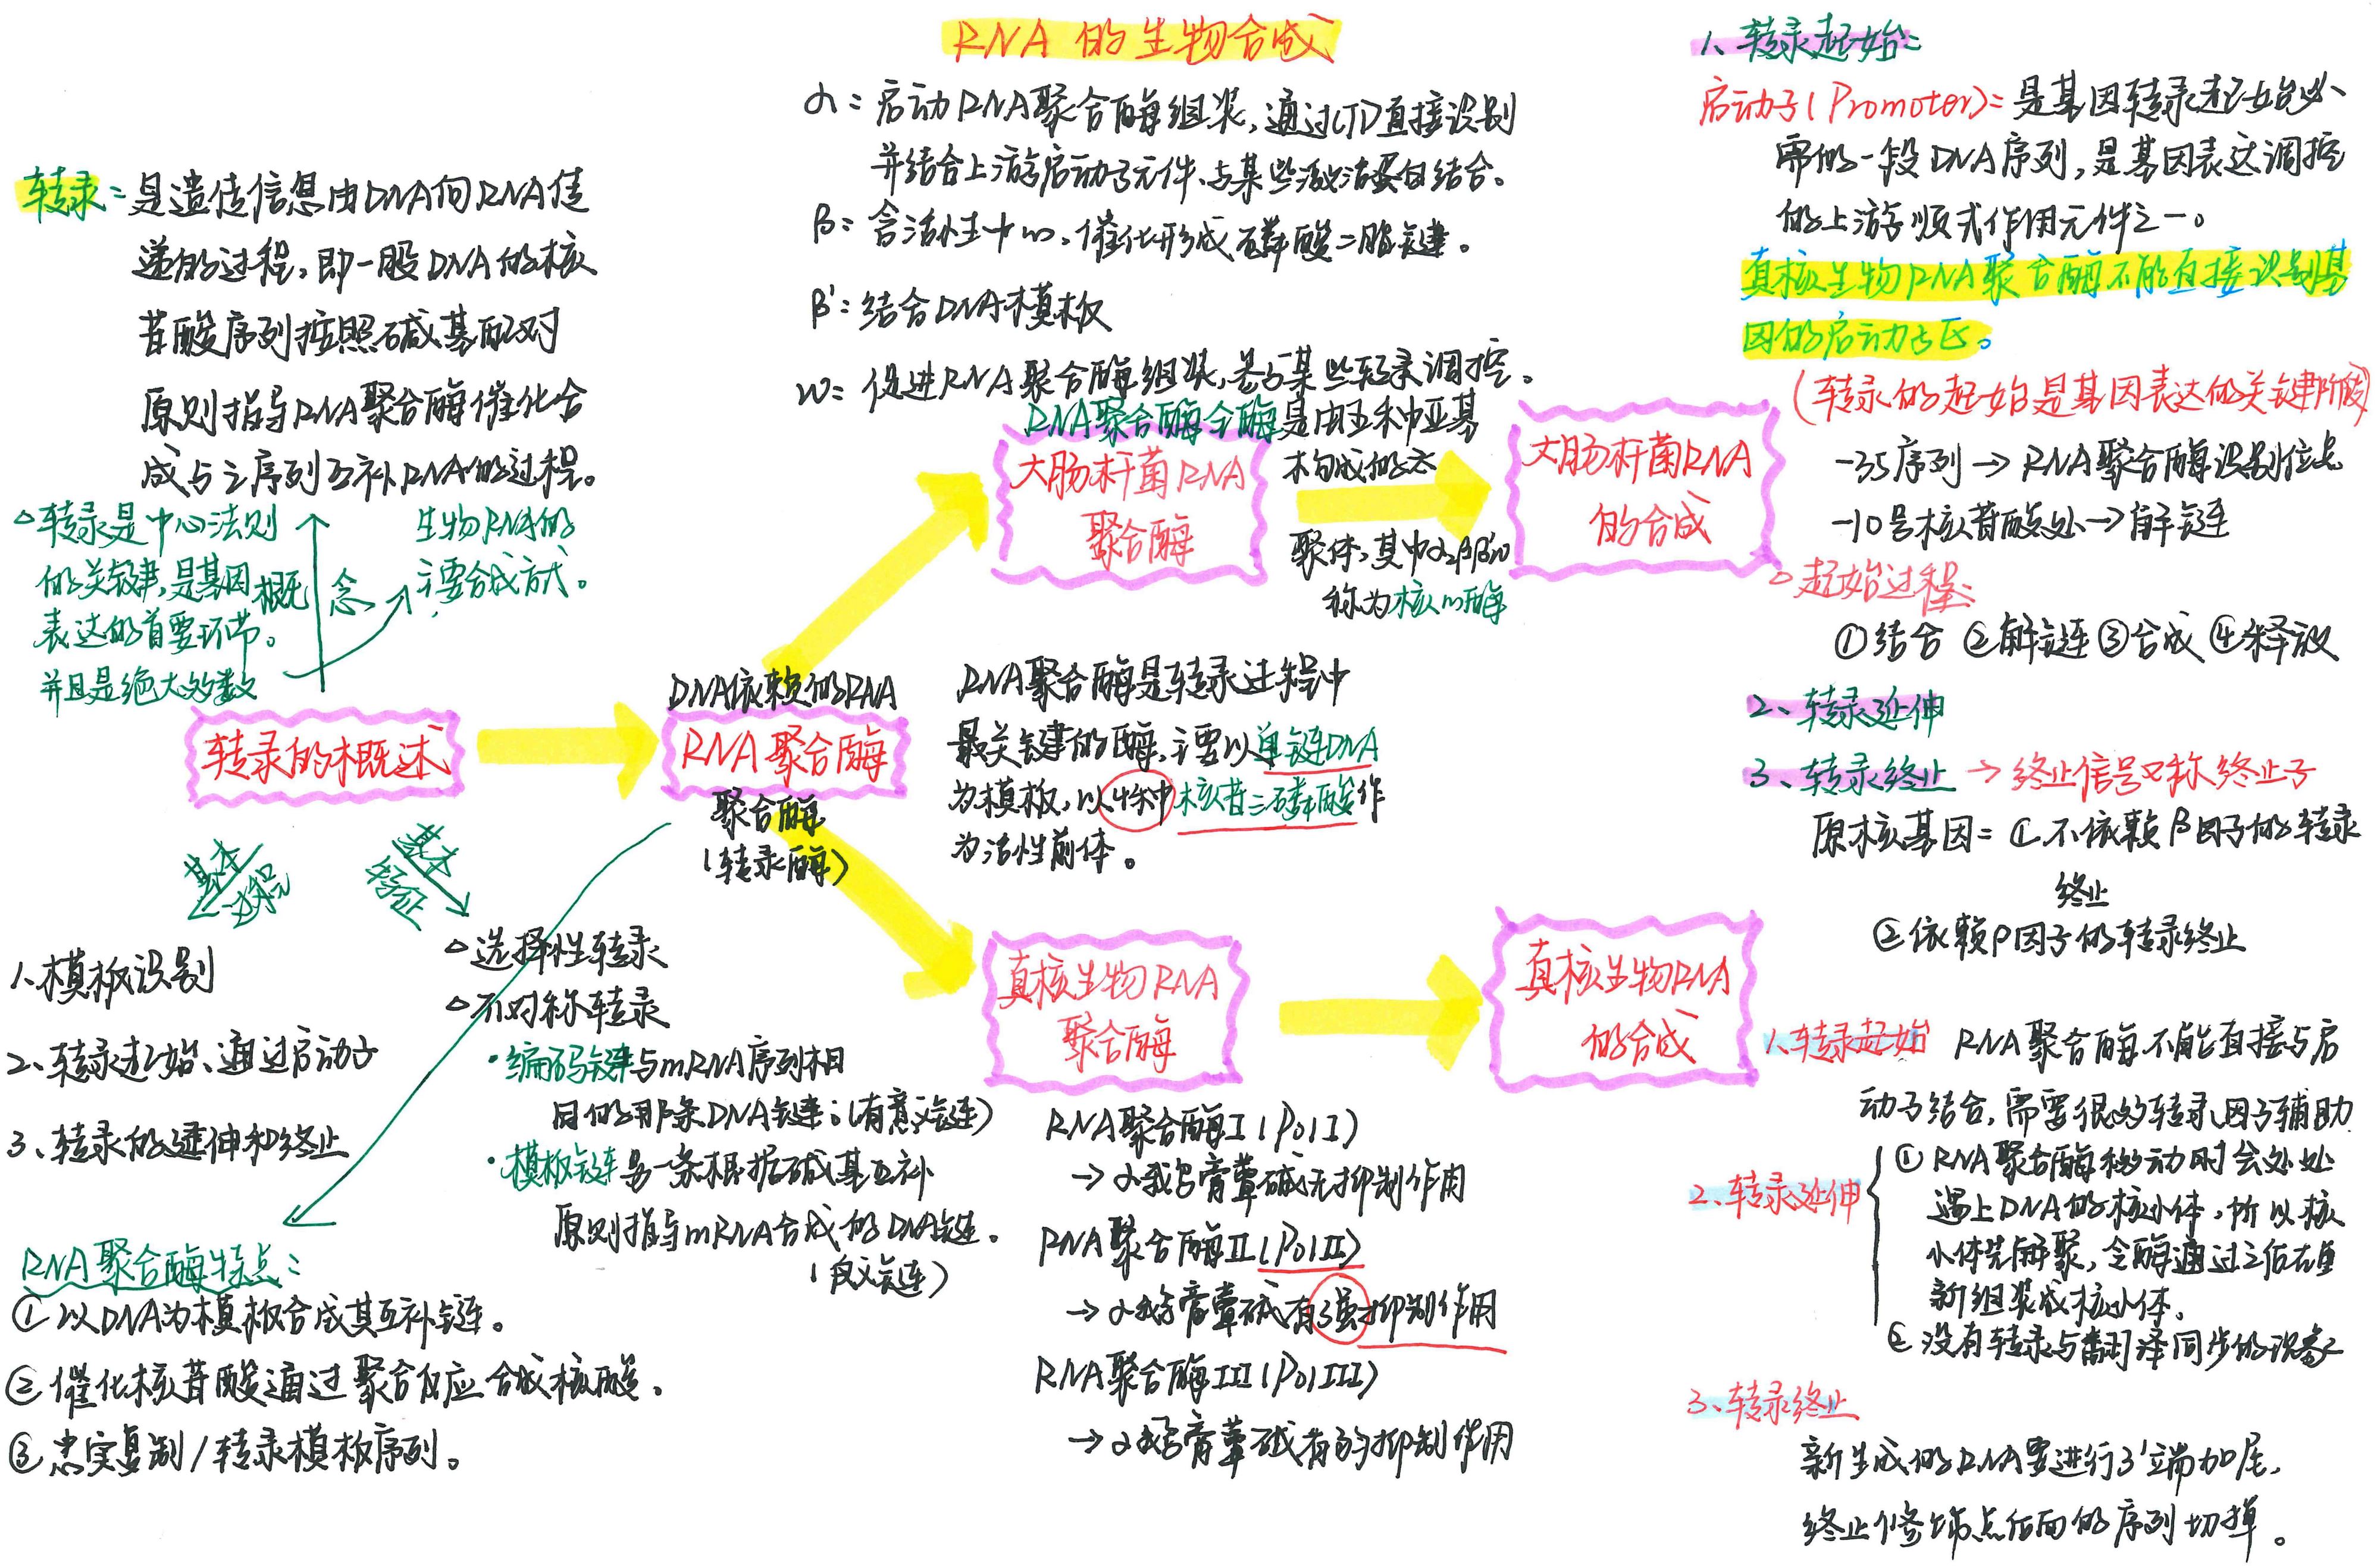 RNA的生物合成
转录：是遗传信息由DNA向RNA传
递的过程，即一股DNA的核
苷酸序列按照碱基配对
原则指导RNA聚合酶催化合
成与之序列互补RNA的过程。
△转录是中心法则
的关键，是基因
表达的首要环节。
并且是绝大多数
概念
生物RNA的
主要合成方式。
转录的概述
基本过程
基本特征
1、模板识别
2、转录起始、通过启动子
3、转录的延伸和终止
△选择性转录
△不对称转录
·编码链与mRNA序列相
同的那条DNA链；（有意义链）
·模板链另一条根据碱基互补
原则指导mRNA合成的DNA链。
（反义链）
RNA聚合酶特点：
①以DNA为模板合成其互补链。
②催化核苷酸通过聚合反应合成核酸。
③忠实复制/转录模板序列。
DNA依赖的RNA
RNA聚合酶
聚合酶
（转录酶）
RNA聚合酶是转录过程中
最关键的酶，主要以单链DNA
为模板，以4种核苷三磷酸作
为活性前体。
α：启动RNA聚合酶组装，通过CTD直接识别
并结合上游启动子元件、与某些激活蛋白结合。
β：含活性中心，催化形成磷酸二酯键。
β'：结合DNA模板
w：促进RNA聚合酶组装，参与某些转录调控。
RNA聚合酶全酶是由五种亚基
构成的六
聚体，其中α2ββ'ω
称为核心酶
大肠杆菌RNA
聚合酶
大肠杆菌RNA
的合成
真核生物RNA
聚合酶
真核生物RNA
的合成
RNA聚合酶I（PolI）
→α-鹅膏蕈碱无抑制作用
RNA聚合酶II（PolII）
→α-鹅膏蕈碱有强抑制作用
RNA聚合酶III（PolIII）
→α-鹅膏蕈碱有弱抑制作用
1、转录起始：
启动子（Promoter）：是基因转录起始必
需的一段DNA序列，是基因表达调控
的上游顺式作用元件之一。
真核生物RNA聚合酶不能直接识别基
因的启动子区。
（转录的起始是基因表达的关键阶段）
-35序列→RNA聚合酶识别位点
-10号核苷酸处→解链
△起始过程：
①结合②解链③合成④释放
2、转录延伸
3、转录终止→终止信号又称终止子
原核基因：①不依赖β因子的转录
终止
②依赖ρ因子的转录终止
1、转录起始 RNA聚合酶不能直接与启
动子结合，需要很多转录因子辅助
2、转录延伸
①RNA聚合酶移动时会处处
遇上DNA的核小体，所以核
小体先解聚，令酶通过之后在重
新组装成核小体。
②没有转录与翻译同步的现象
3、转录终止
新生成的RNA要进行3'端加尾，
终止修饰点后面的序列切掉。